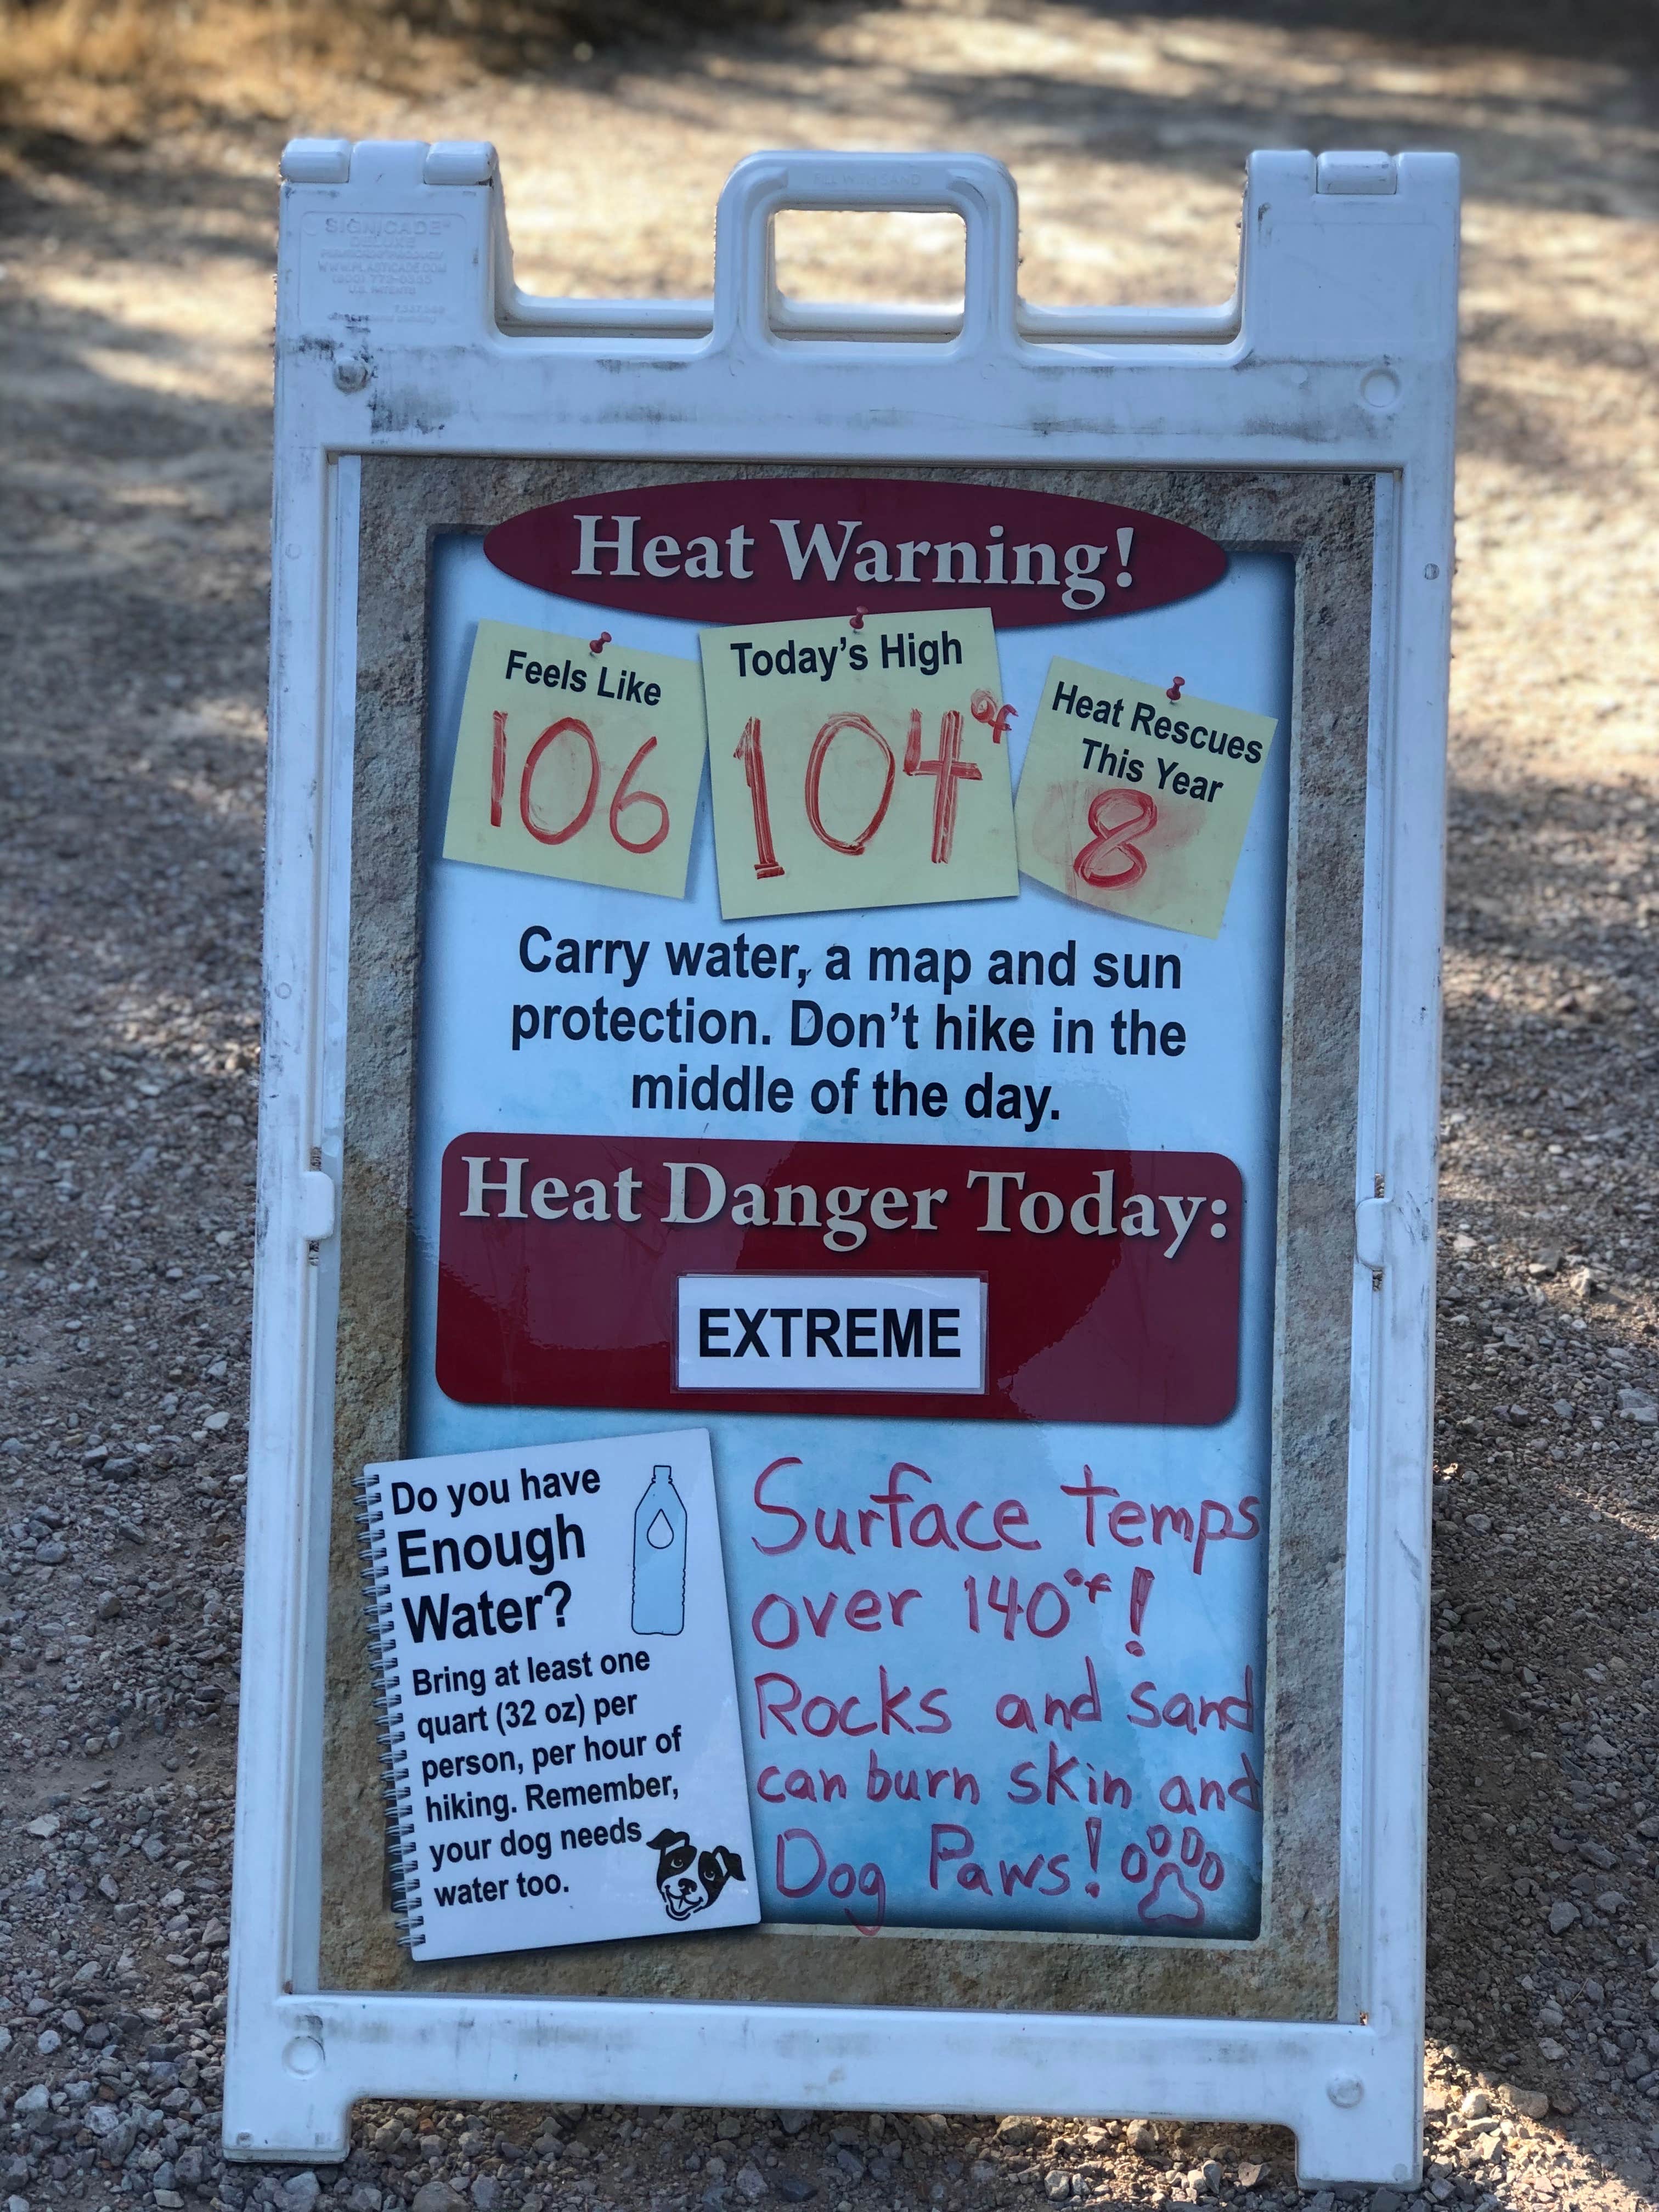 FILL WITH SAND
SIGNICADE®
DELUXE
WWW.PLASTICADE.COM
U.S. PATENTS
Heat Warning!
Feels Like
106
Today's High
104°F
Heat Rescues
This Year
8
Carry water, a map and sun
protection. Don't hike in the
middle of the day.
Heat Danger Today:
EXTREME
Do you have
Enough
Water?
Bring at least one
quart (32 oz) per
person, per hour of
hiking. Remember,
your dog needs
water too.
Surface temps
over 140°F!
Rocks and sand
can burn skin and
Dog Paws!